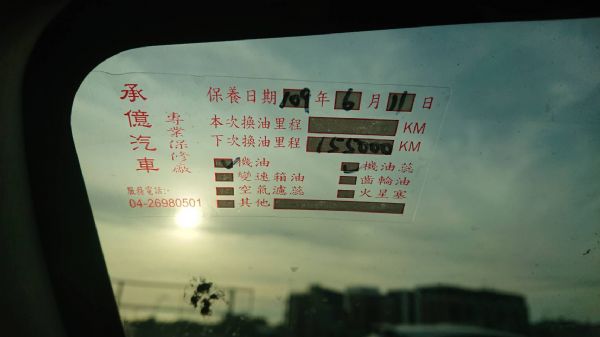 承億汽車
專業保修廠
服務電話:-
04-26980501
保養日期 109 年 6 月 11 日
本次換油里程 KM
下次換油里程 155000 KM
機油 機油蕊
變速箱油 齒輪油
空氣濾蕊 火星塞
其他